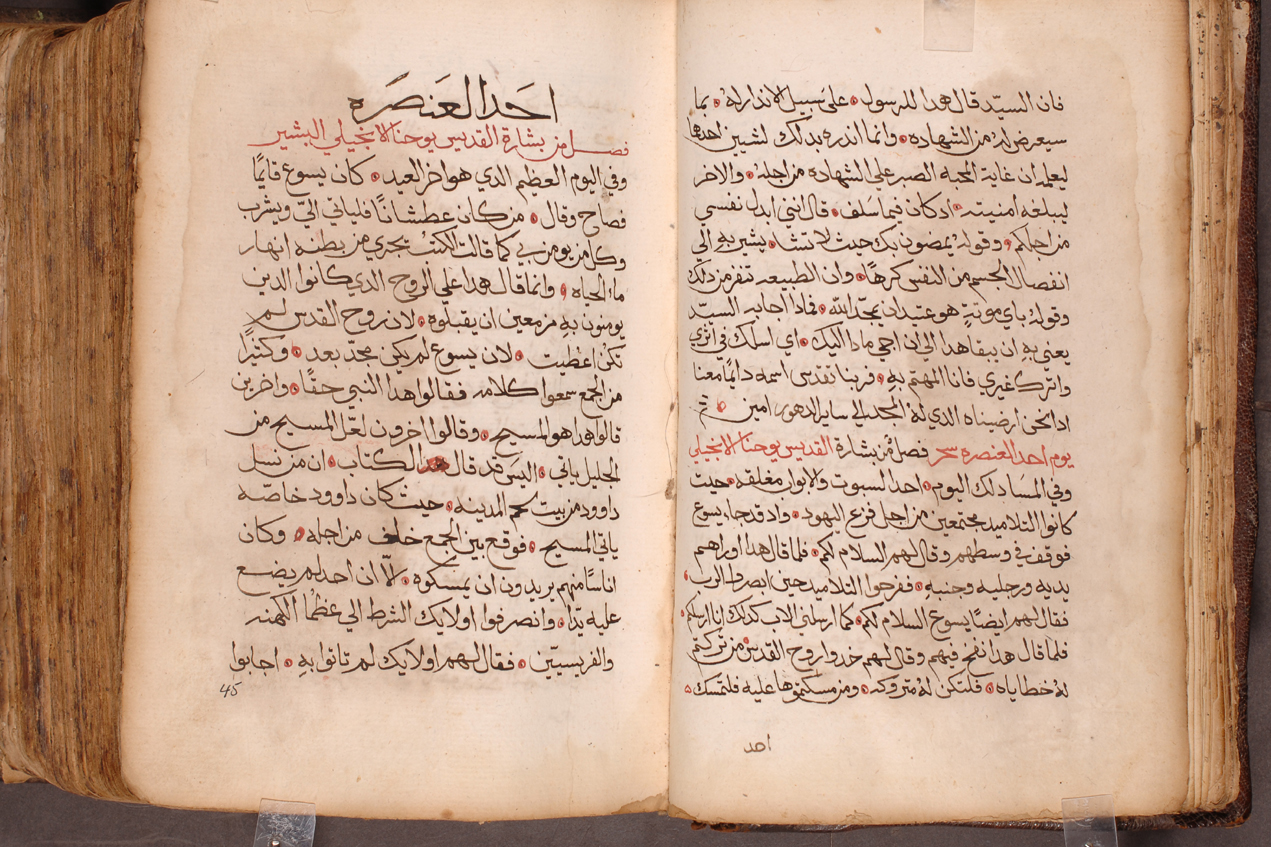 فان السيّد قال هدا للرسول على سبيل الاندار له بما
سيعرض له من الشهاده وانما اندره بدلك لشيين احدها
ليعلم ان غاية المحبه الصبر على الشهاده من اجله والاخر
ليبلغه امنيته اد كان فيما سلف قال انني ابدل نفسي
من اجلكم وقوله يمضون بك حيث لا تشا يشير به الي
انفصال الجسم من النفس كرهًا وان الطبيعه تنفر من دلك
وقوله باي موتةٍ هو عتيد ان يمجد الله فمادا اجابه السيّد
يعني به ان يبقا هدا الى ان اجي مادا اليك اي اسلك في اثري
واترك غيري فانا المهتم به فربنا تقدس اسمه دايمًا معنا
ادا نحن ارضيناه الدي له المجد الى ساير الدهور امين
يوم احد العنصره سحر فصل من بشارة القديس يوحنا الانجيلي
وفي المسا دلك اليوم احد السبوت والابواب مغلقه حيت
كانوا التلاميد مجتمعين من اجل فزع اليهود واد قد جا يسوع
فوقف في وسطهم وقال لهم السلام لكم فلما قال هدا اوراهم
يديه ورجليه وجنبه ففرحوا التلاميد حين ابصروا الرب
فقال لهم ايضًا يسوع السلام لكم كما ارسلني الاب كدلك انا ارسلكم
فلما قال هدا نفخ فيهم وقال لهم خدوا روح القدس من تركتم
له خطاياه فلتكن له متروكه ومن مسكتموها عليه فلتمسك
احد
احد العنصره
فصل من بشارة القديس يوحنا الانجيلي البشير
وفي اليوم العظيم الدي هو اخر العيد كان يسوع قايمًا
فصاح وقال من كان عطشانًا فلياتي اليّ ويشرب
وكل من يومن بي كما قالت الكتب تجري من بطنه انهار
ما الحياه وانما قال هدا على الروح الدي كانوا الدين
يومنون به مزمعين ان يقبلوه لان روح القدس لم
تكن اعطيت لان يسوع لم يكن مجّد بعد وكثيرًا
من الجمع سمعوا كلامه فقالوا هدا النبي حقًا واخرين
قالوا هدا هو المسيح وقالوا اخرون لعل المسيح من
الجليل ياتي اليس قد قال الكتاب ان من نسل
داوود من بيت لحم المدينه حيت كان داوود خاصّه
ياتي المسيح فوقع بين الجمع خلف من اجله وكان
اناسًا منهم يريدون ان يمسكوه لاّ ان احد لم يضع
عليه يدًا وانصرفوا اولايك الشرط الي عظما الكهنه
والفريسيّين فقال لهم اولايك لم تاتوا به اجابوا
45